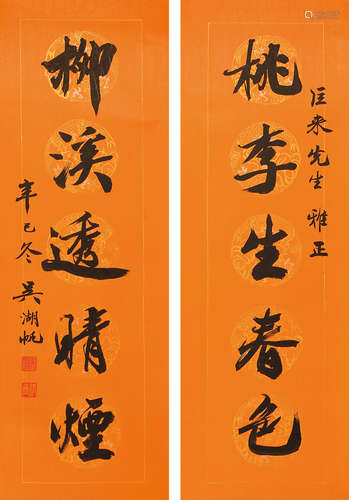 桃李生春色
匡来先生 雅正
柳溪透晴煙
辛巳冬 吴湖帆